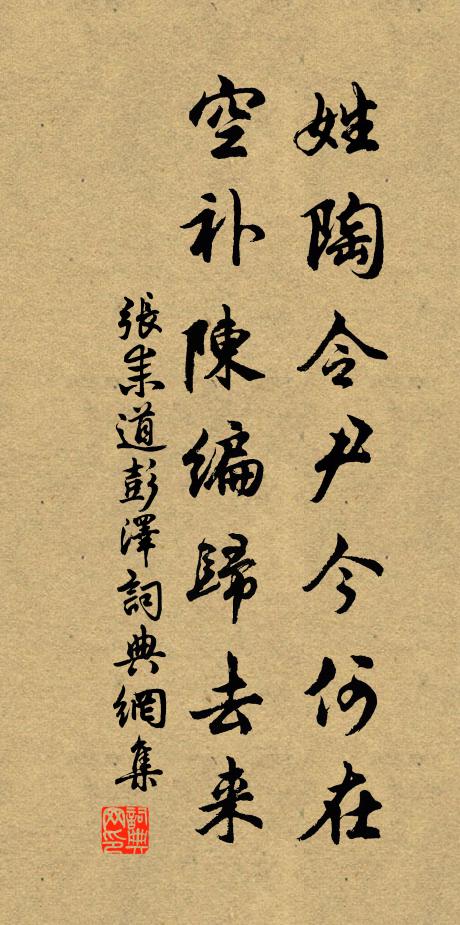 姓陶令尹今何在
空补陳編歸去来
張耒道彭澤詞典網集
詞典网印